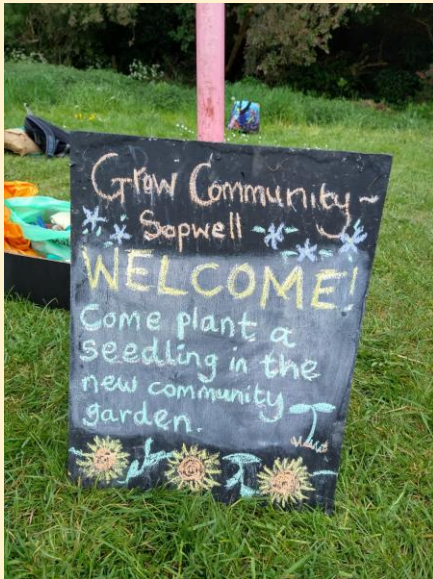 Grow Community ~
Sopwell
WELCOME!
Come plant a
seedling in the
new community
garden.